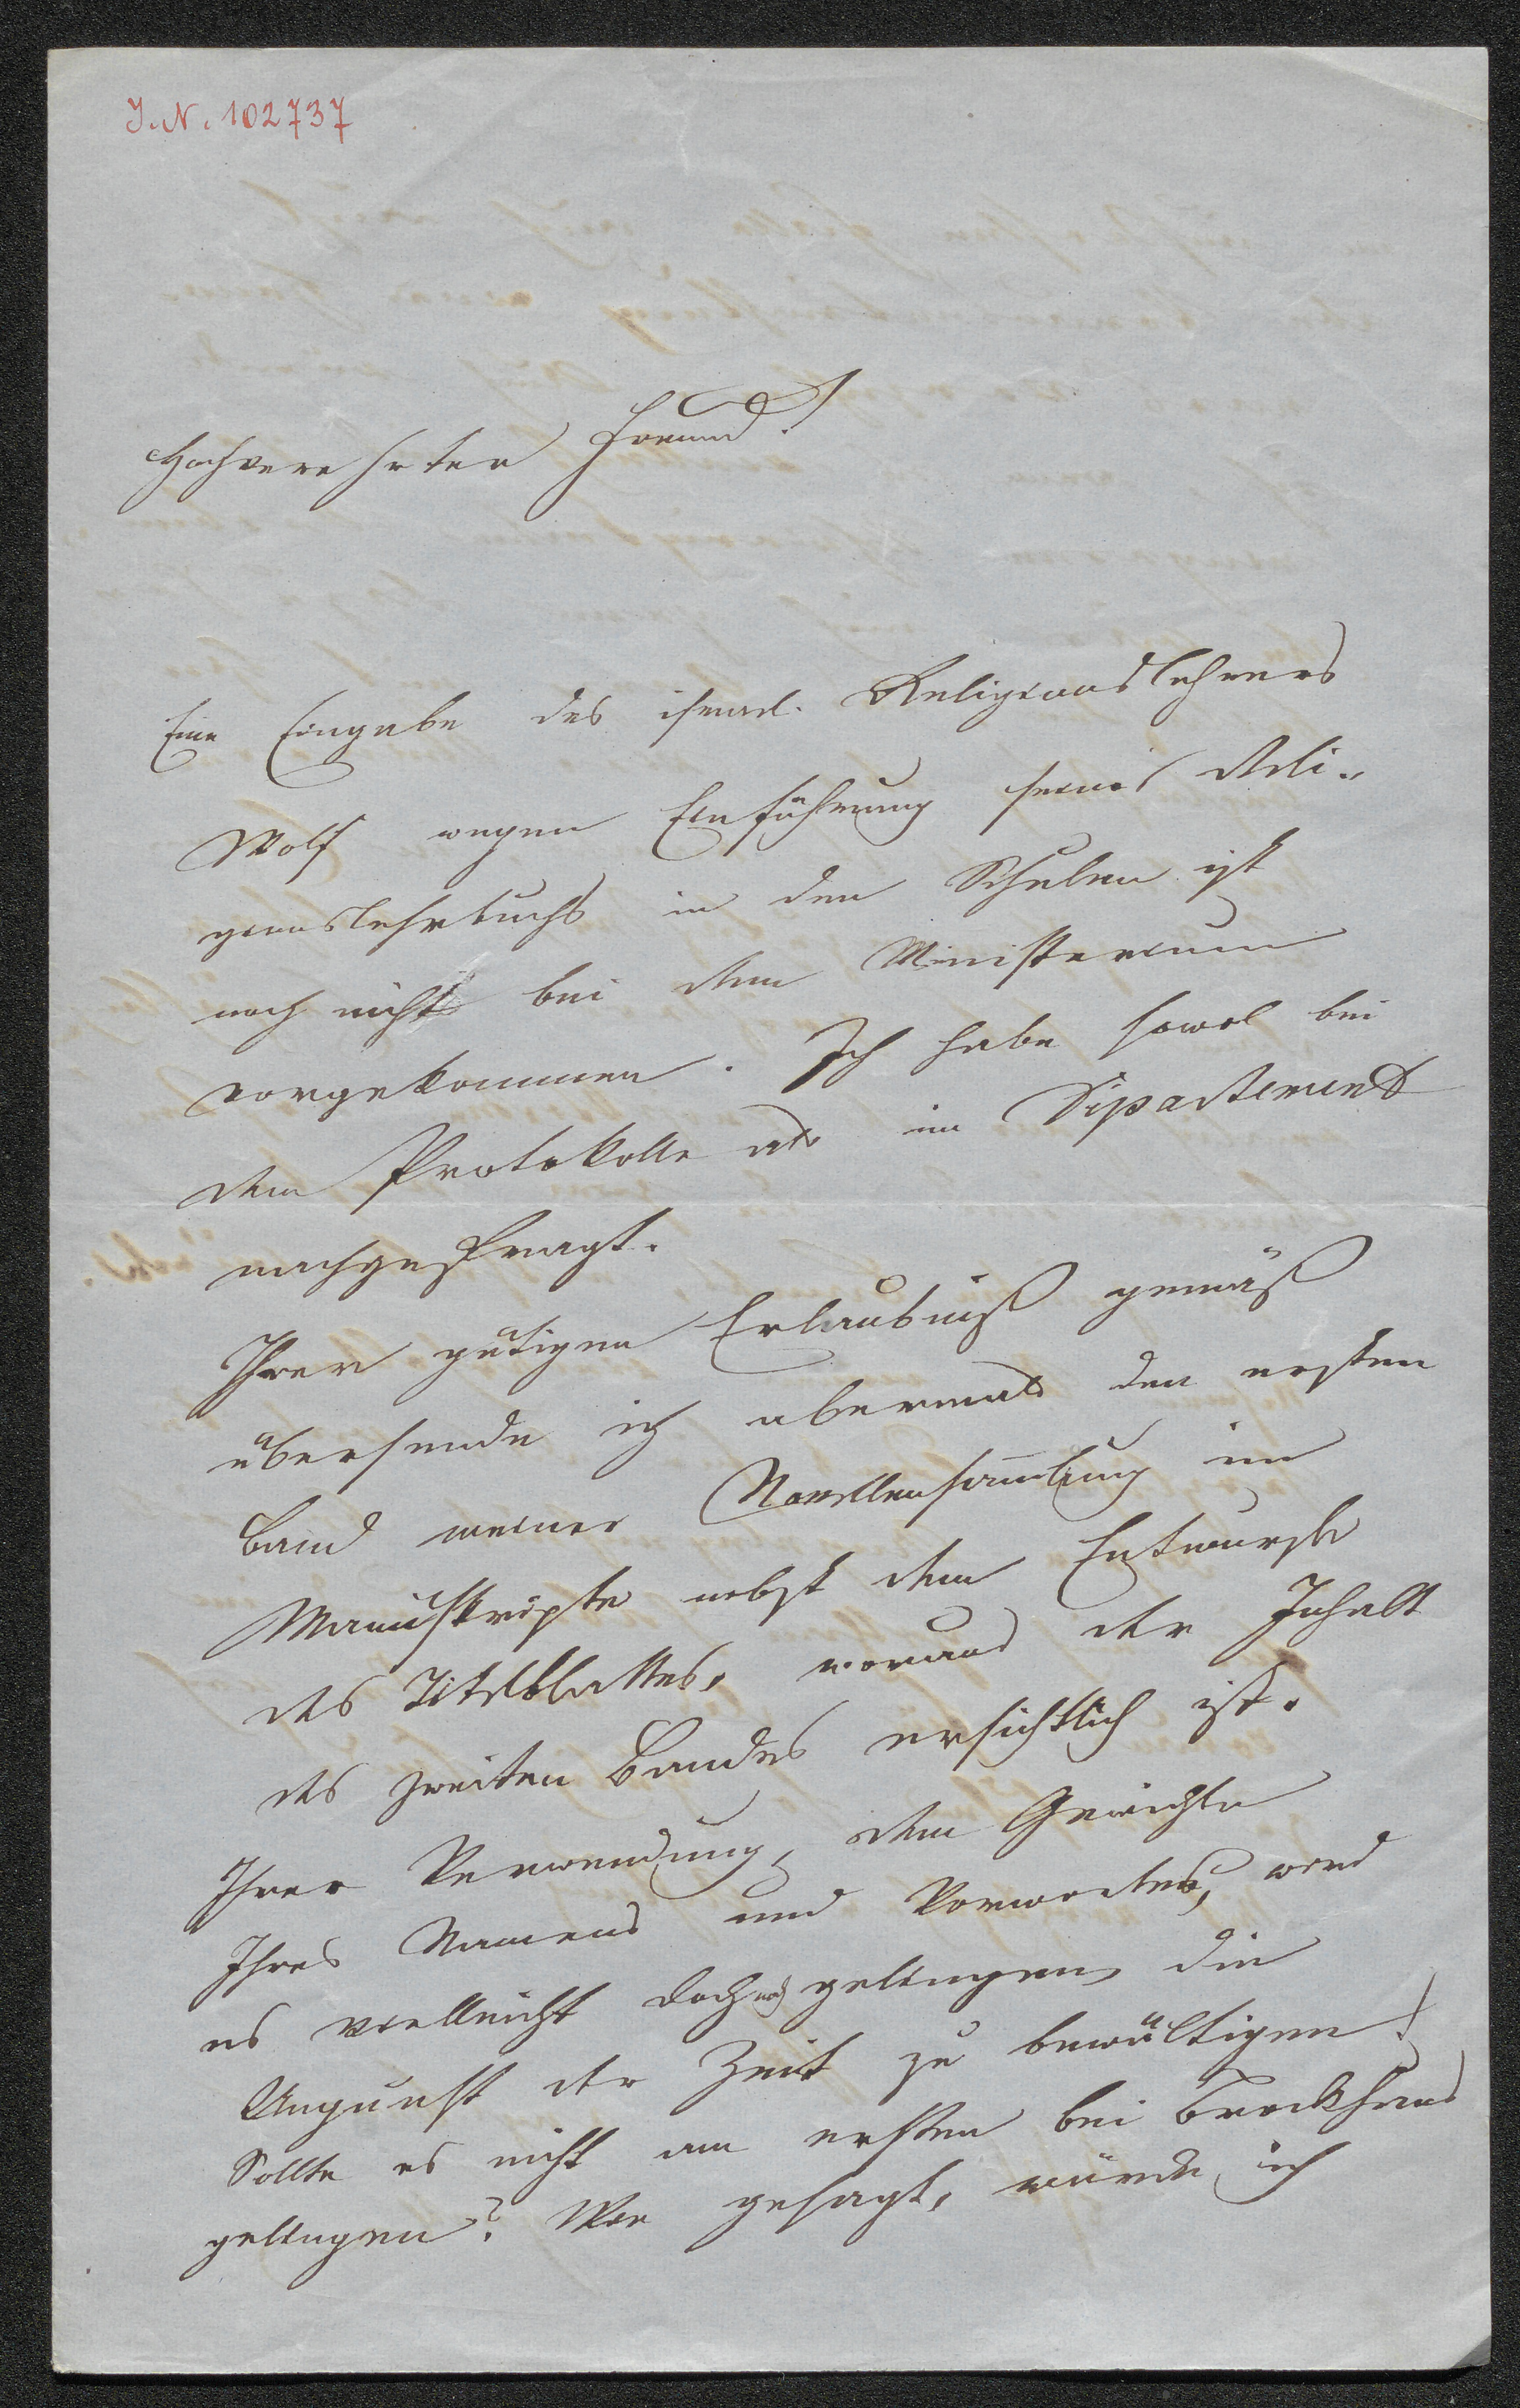 I.N. 102737
Hochverehrter Freund!
Eine Eingabe des israel. Religionslehrers
Wolf wegen Einführung seines Reli-
gionslehrbuchs in den Schulen ist
noch nicht bei dem Ministerium
vorgekommen. Ich habe sowol bei
dem Protokolle als im Departement
nachgefragt.
Ihrer gütigen Erlaubniß gemäß
übersende ich abermals den ersten
Band meiner Novellensam̅lung im
Manuskripte nebst dem Entwurfe
des Titelblattes, woraus der Inhalt
des zweiten Bandes ersichtlich ist.
Ihrer Verwendung, dem Gewichte
Ihres Namens und Vorwortes, wird
es vielleicht doch noch gelingen die
Ungunst der Zeit zu bewältigen!
Sollte es nicht am ersten bei Brockhaus
gelingen? Wie gesagt, würde ich